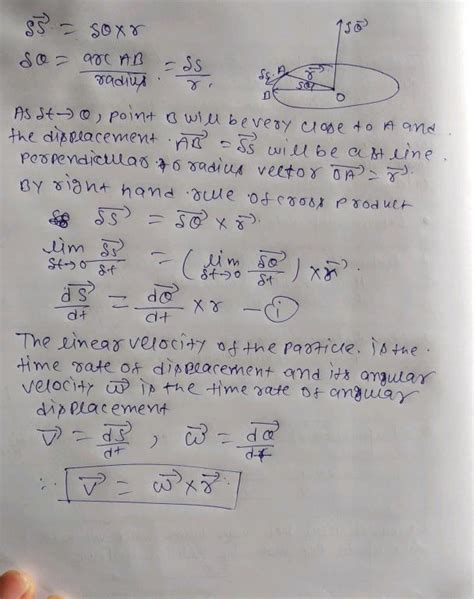 δS⃗ = δθ × r
δθ = arc AB / radius = δs / r.
δθ⃗
δs A r⃗
B δθ O
As δt→0, point B will be very close to A and
the displacement AB⃗ = δS⃗ will be a st line
perpendicular to radius vector OA⃗ = r⃗
By right hand rule of cross product
δS⃗ = δθ⃗ × r⃗
lim δt→0 δS⃗/δt = (lim δt→0 δθ⃗/δt) × r⃗
dS⃗/dt = dθ⃗/dt × r — (i)
The linear velocity of the particle is the
time rate of displacement and its angular
velocity ω⃗ is the time rate of angular
displacement
V⃗ = dS⃗/dt , ω⃗ = dθ⃗/dt
∴ V⃗ = ω⃗ × r⃗